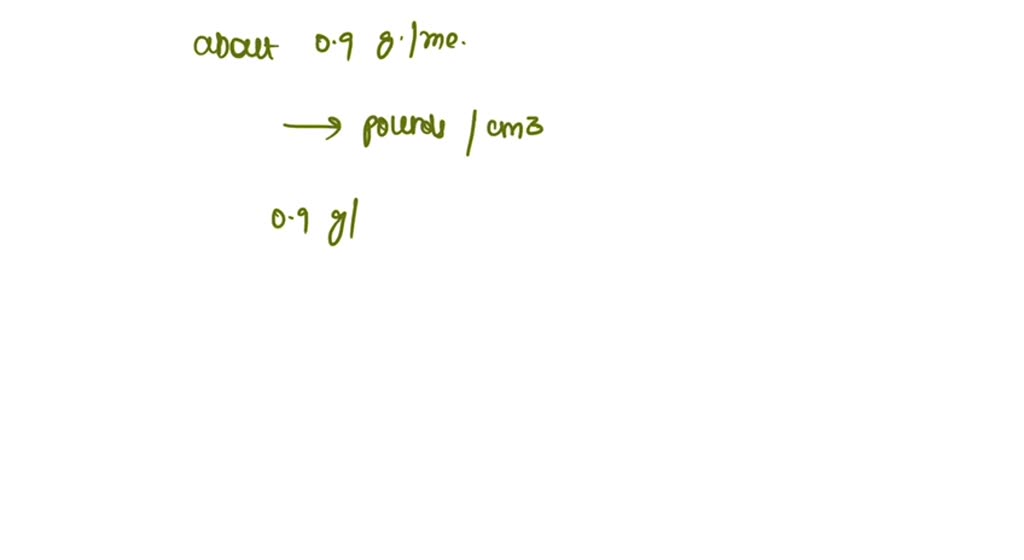 about 0.9 g./me.
→ pounds / cm3
0.9 g/